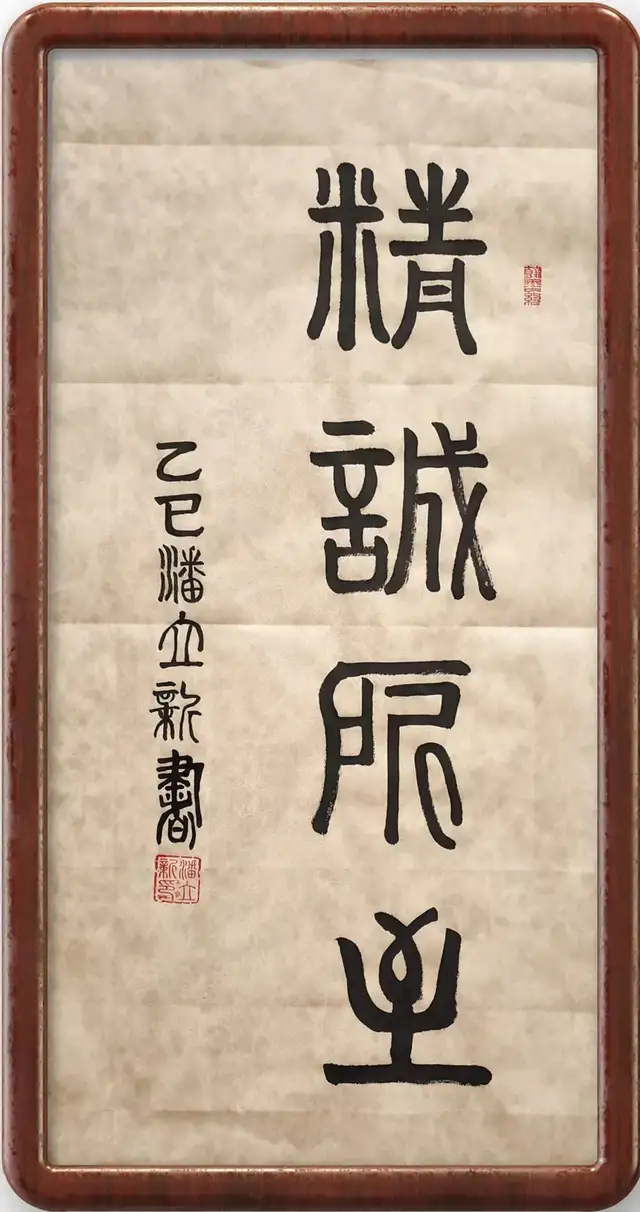 精誠所至
乙巳潘立新書
潘立新印